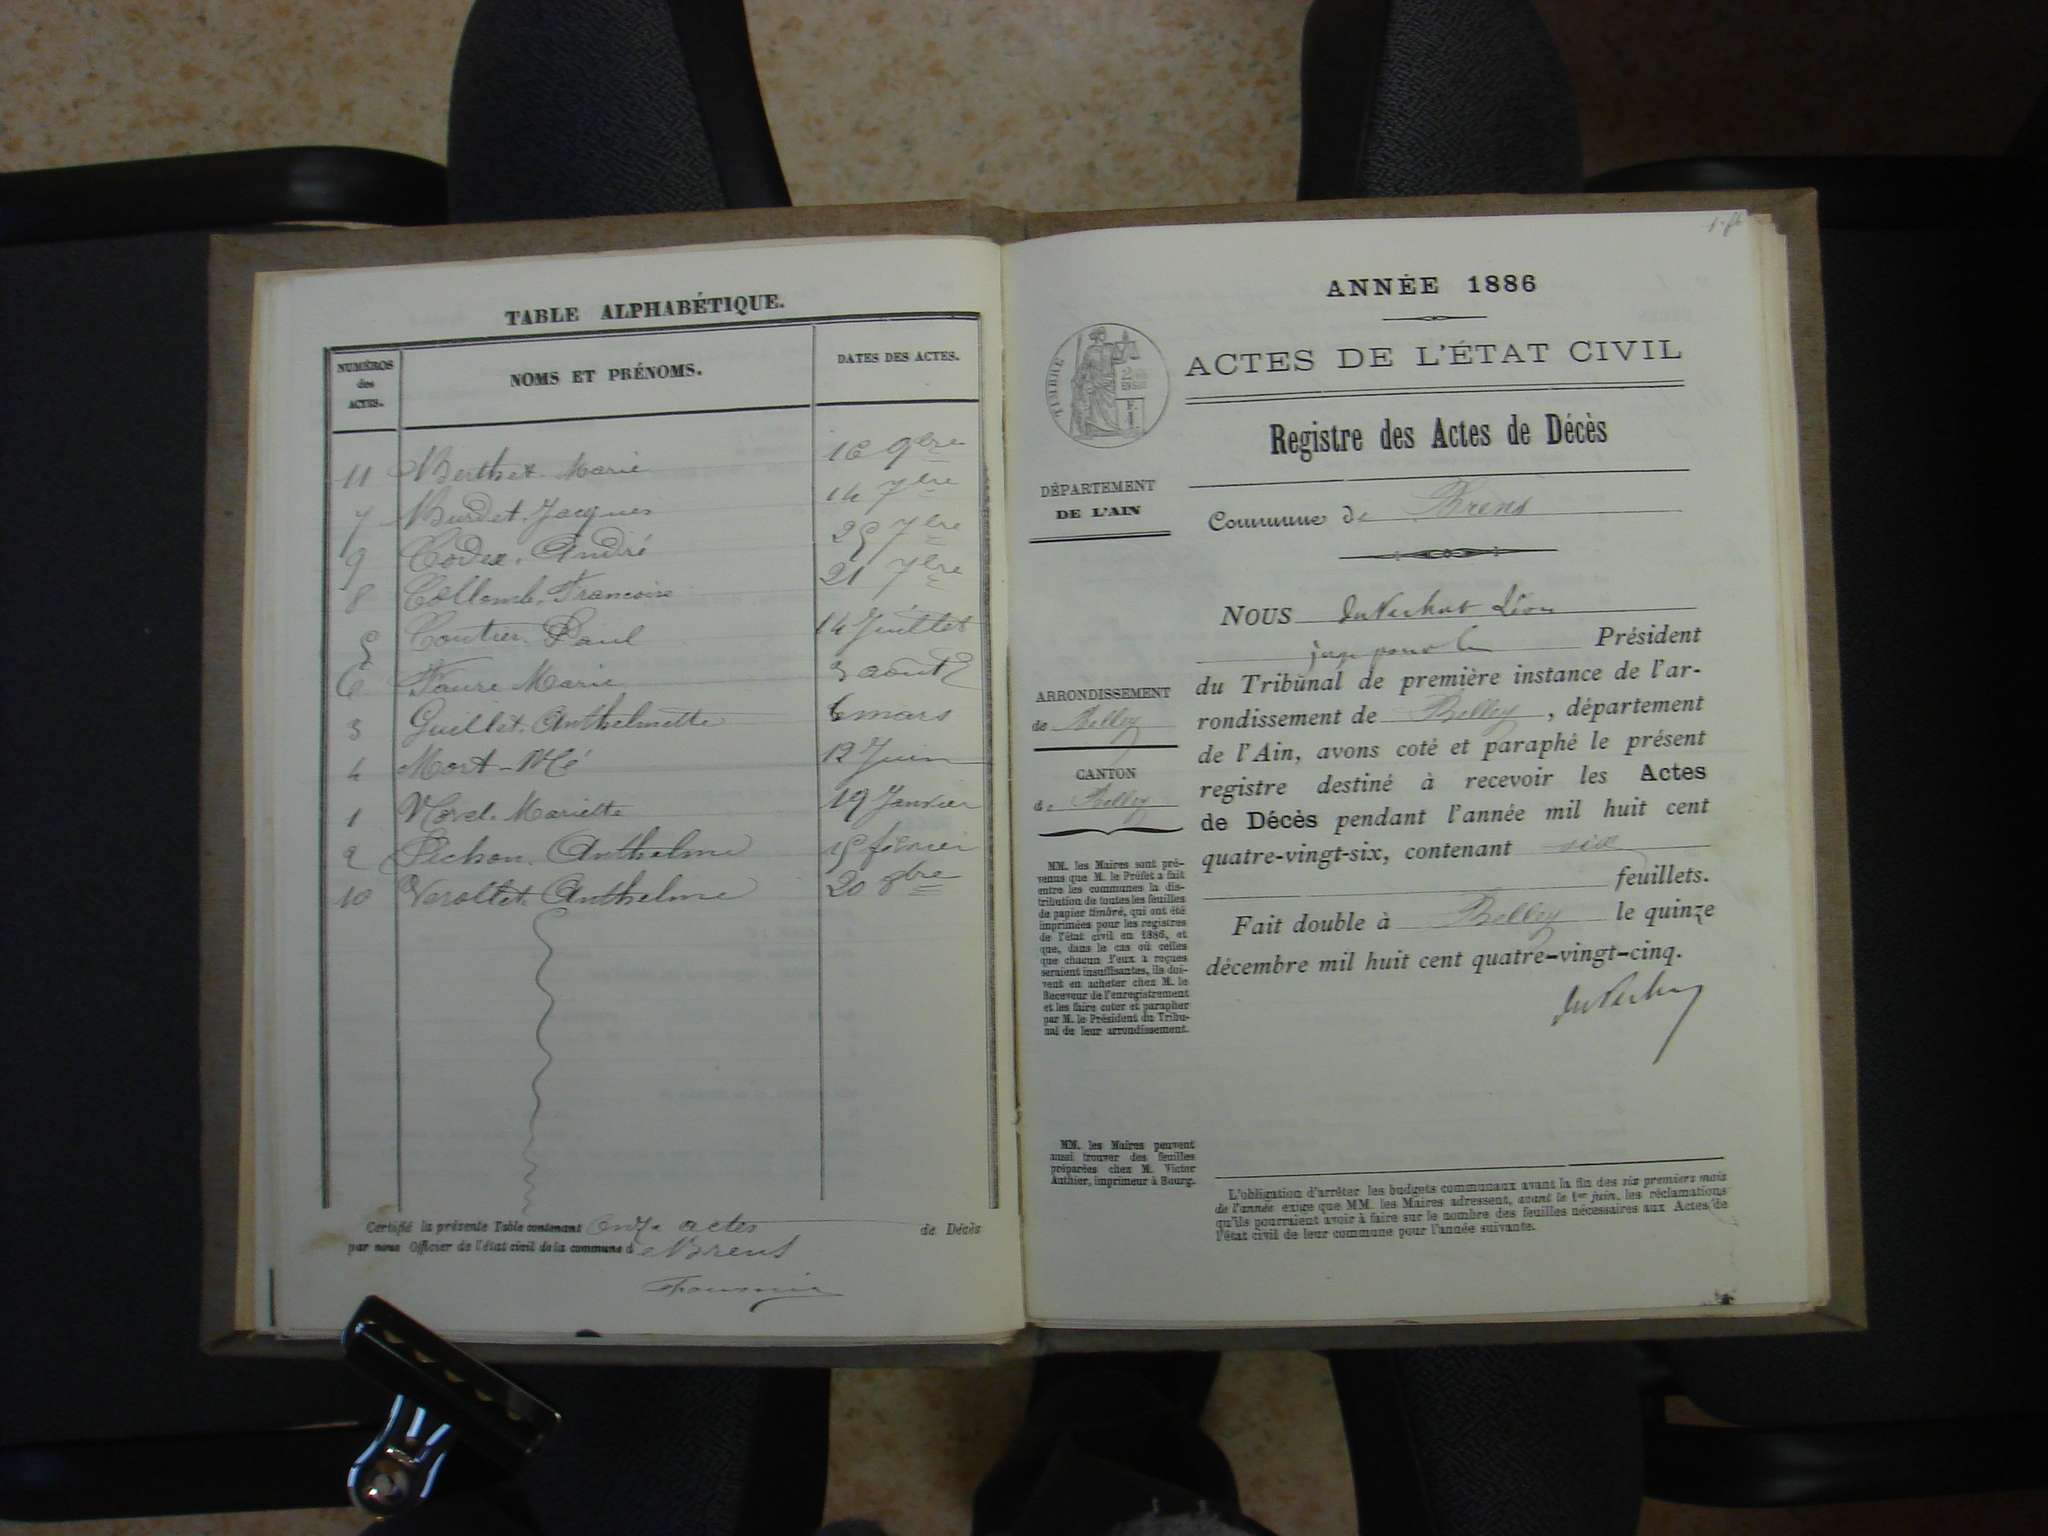 TABLE ALPHABÉTIQUE.
NUMÉROS
des
ACTES.
NOMS ET PRÉNOMS.
DATES DES ACTES.
11 Berthet Marie 16 9bre
7 Burdet Jacques 14 7bre
9 Codex André 25 7bre
8 Collomb Francoise 21 7bre
5 Coutier Paul 14 Juillet
6 Faure Marie 3 août
3 Guillet Anthelmette 6 mars
4 Mort-Né 12 Juin
1 Morel Mariette 19 Janvier
2 Pichon Anthelme 15 février
10 Verollet Anthelme 20 8bre
Certifié la présente Table contenant onze actes de Décès
par nous Officier de l'état civil de la commune d Brens
Fournier
ANNÉE 1886
TIMBRE
ACTES DE L'ÉTAT CIVIL
Registre des Actes de Décès
DÉPARTEMENT
DE L'AIN
Commune de Brens
ARRONDISSEMENT
de Belley
CANTON
de Belley
MM. les Maires sont pré-
venus que M. le Préfet a fait
entre les communes la dis-
tribution de toutes les feuilles
de papier timbré, qui ont été
imprimées pour les registres
de l'état civil en 1886, et
que, dans le cas où celles
que chacun d'eux a reçues
seraient insuffisantes, ils doi-
vent en acheter chez M. le
Receveur de l'enregistrement
et les faire coter et parapher
par M. le Président du Tribu-
nal de leur arrondissement.
MM. les Maires peuvent
aussi trouver des feuilles
préparées chez M. Victor
Authier, imprimeur à Bourg.
NOUS Léon
juge pour le Président
du Tribunal de première instance de l'ar-
rondissement de Belley, département
de l'Ain, avons coté et paraphé le présent
registre destiné à recevoir les Actes
de Décès pendant l'année mil huit cent
quatre-vingt-six, contenant six
feuillets.
Fait double à Belley le quinze
décembre mil huit cent quatre-vingt-cinq.
L'obligation d'arrêter les budgets communaux avant la fin des six premiers mois
de l'année exige que MM. les Maires adressent, avant le 1er juin, les réclamations
qu'ils pourraient avoir à faire sur le nombre des feuilles nécessaires aux Actes de
l'état civil de leur commune pour l'année suivante.